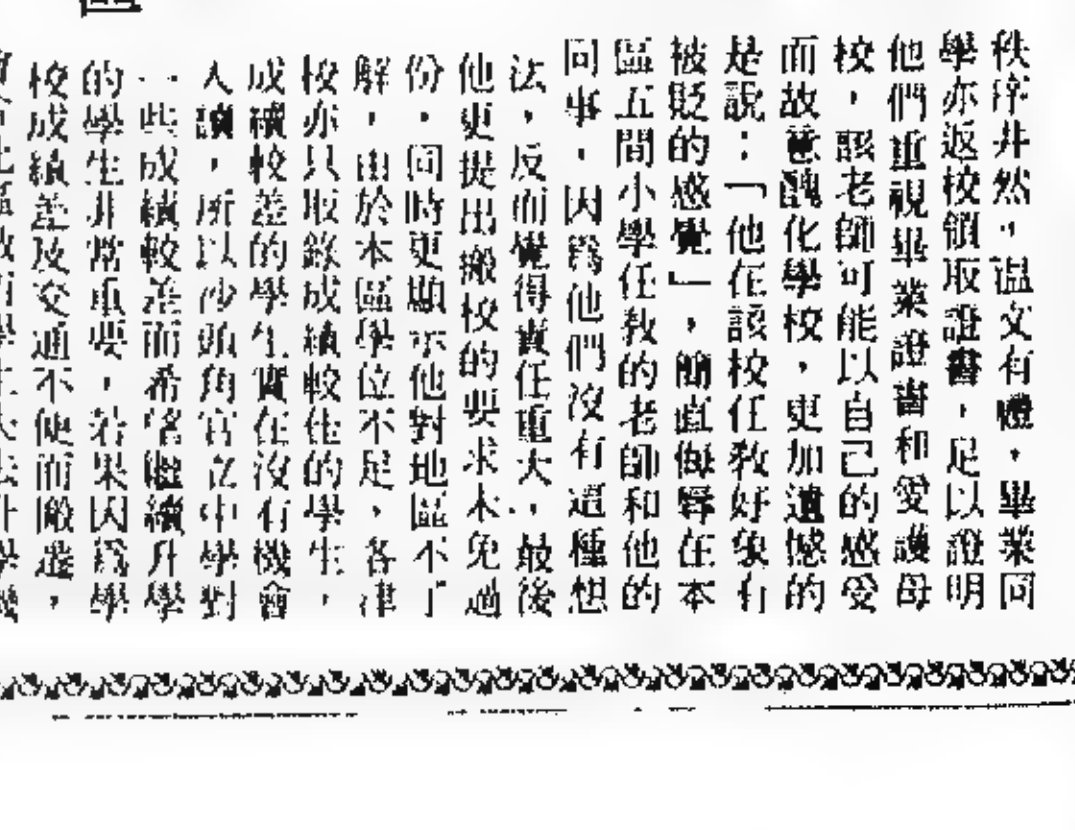 秩序井然,溫文有禮,畢業同
學亦返校領取證書,足以證明
他們重視畢業證書和愛護母
校,該老師可能以自己的感受
而故意醜化學校,更加遺憾的
是說:「他在該校任敎好象有
被貶的感覺」,簡直侮辱在本
區五間小學任敎的老師和他的
同事,因爲他們沒有這種想
法,反而覺得責任重大,最後
他更提出搬校的要求未免過
份,同時更顯示他對地區不了
解,由於本區學位不足,各津
校亦只取錄成績較佳的學生,
成績較差的學生實在沒有機會
入讀,所以沙頭角官立中學對
一些成績較差而希望繼續升學
的學生非常重要,若果因爲學
校成績差及交通不便而搬遷,